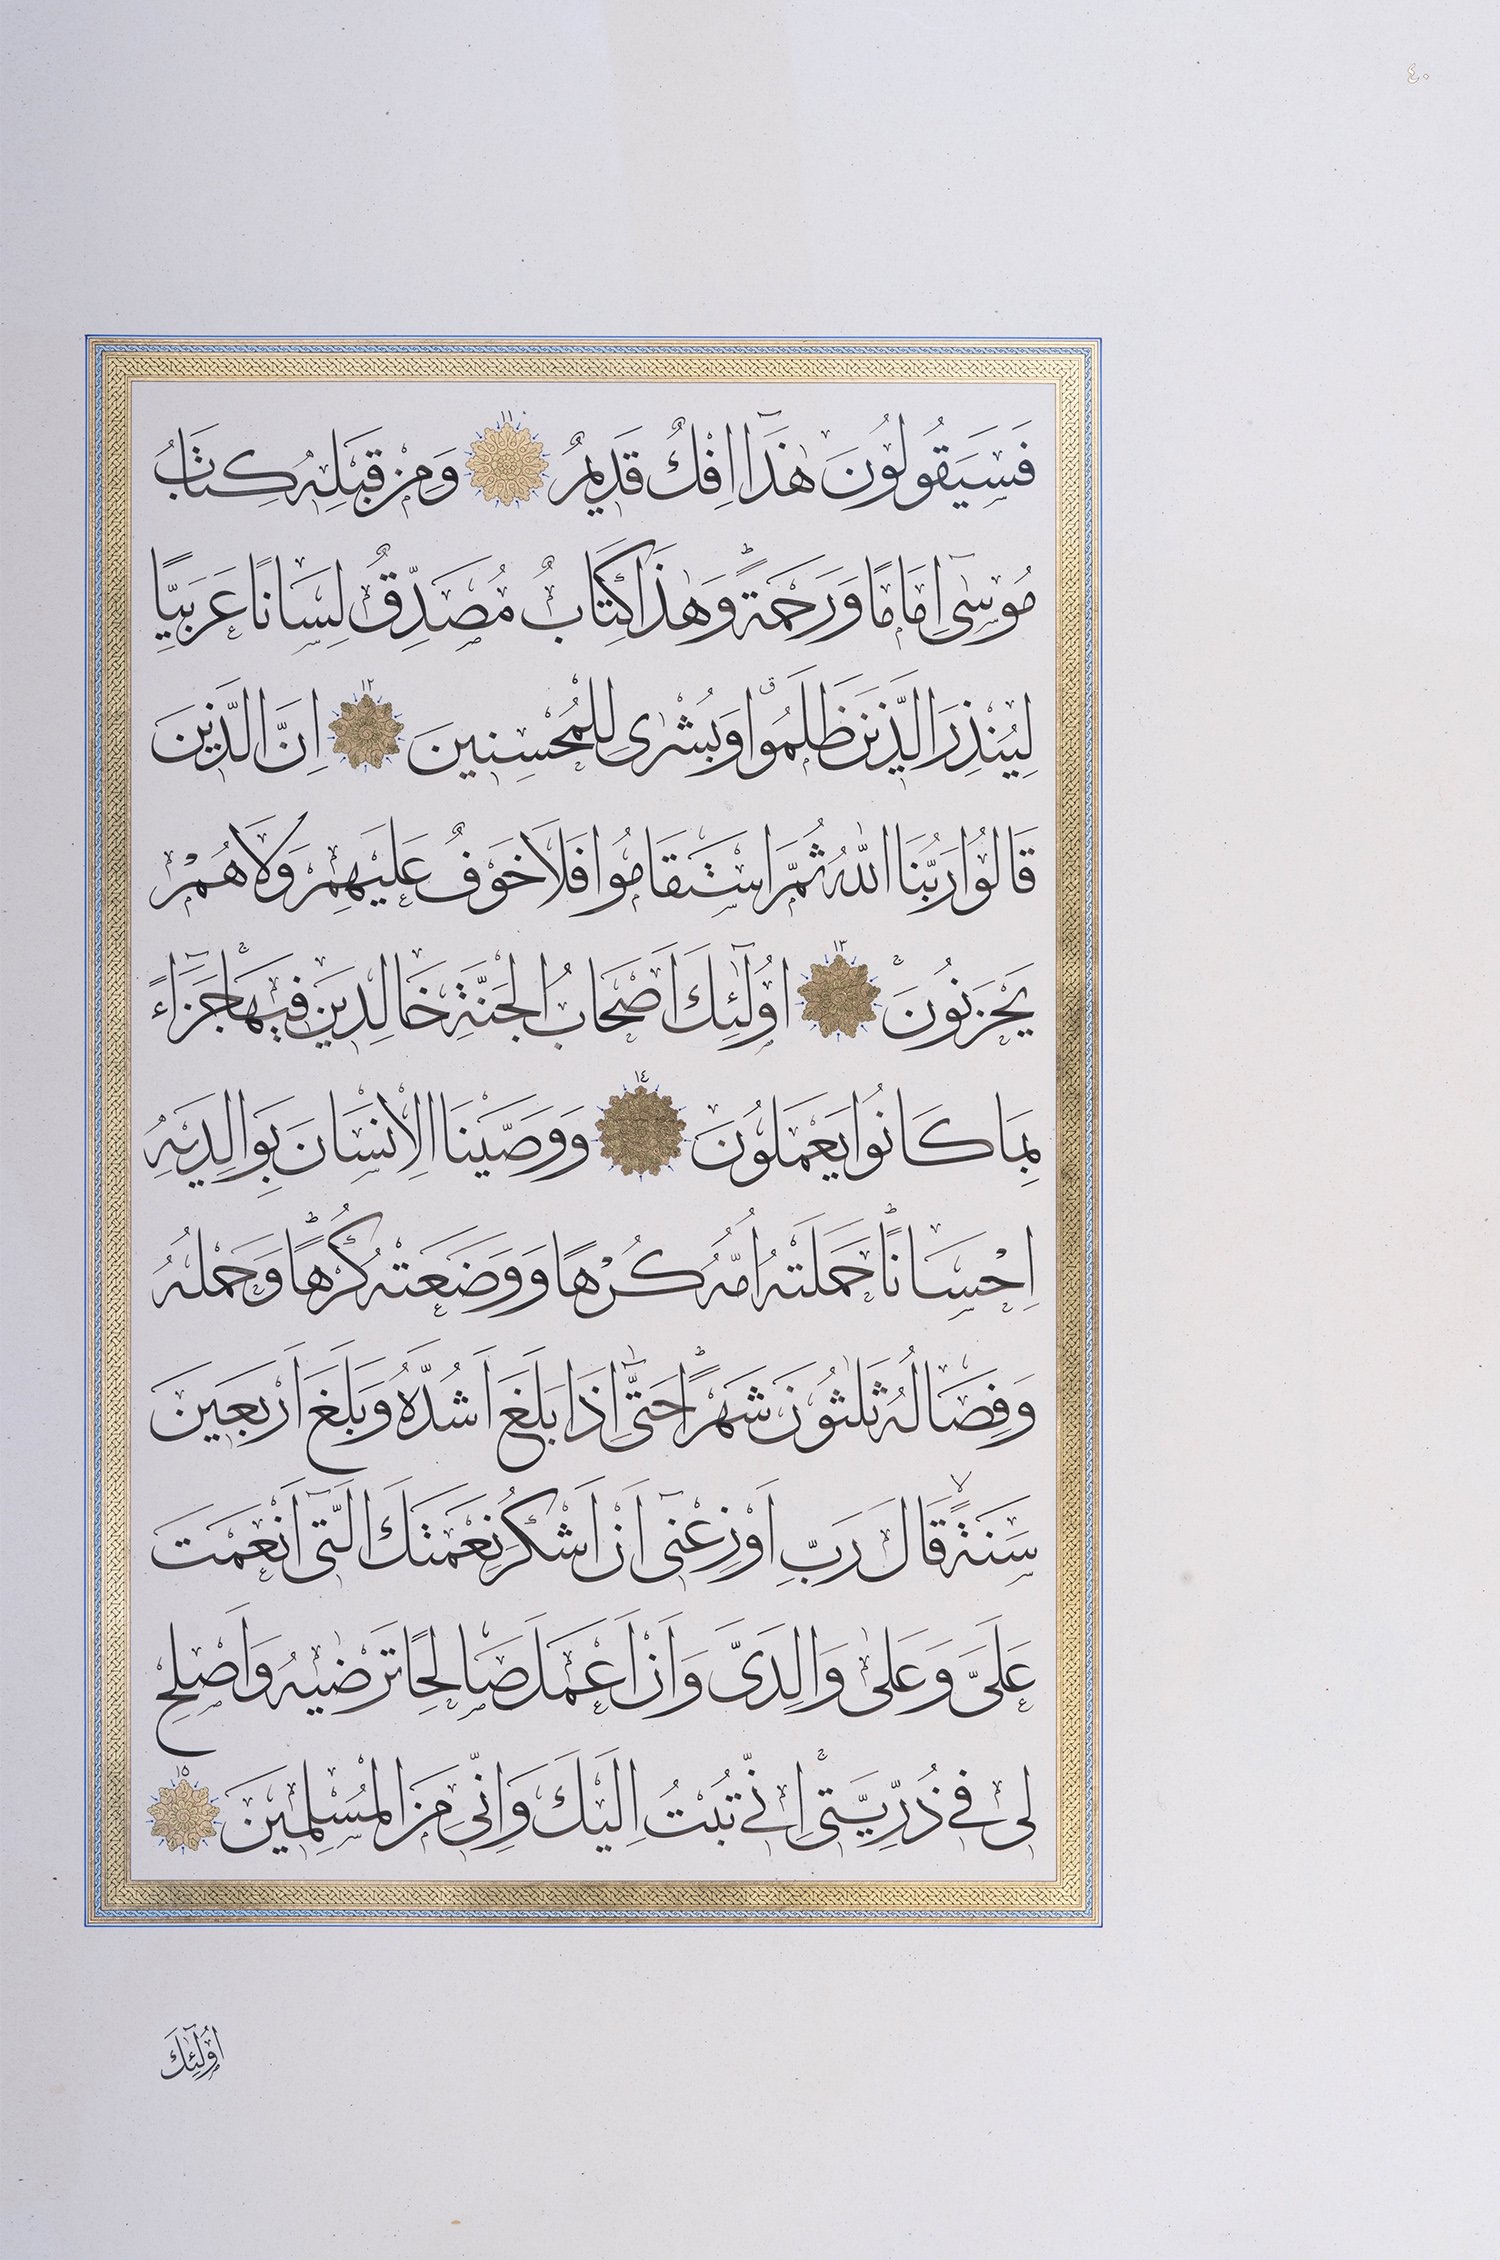 ٤٠
فَسَيَقُولُونَ هٰذَٓا اِفْكٌ قَدِيمٌ ١١ وَمِنْ قَبْلِهِ كِتَابُ
مُوسٰٓى اِمَامًا وَرَحْمَةً ۜ وَهٰذَا كِتَابٌ مُصَدِّقٌ لِسَانًا عَرَبِيًّا
لِيُنْذِرَ الَّذِينَ ظَلَمُوا ۗ وَبُشْرٰى لِلْمُحْسِنِينَ ١٢ اِنَّ الَّذِينَ
قَالُوا رَبُّنَا اللّٰهُ ثُمَّ اسْتَقَامُوا فَلَا خَوْفٌ عَلَيْهِمْ وَلَا هُمْ
يَحْزَنُونَ ١٣ اُو۬لٰٓئِكَ اَصْحَابُ الْجَنَّةِ خَالِدِينَ فِيهَا جَزَٓاءً
بِمَا كَانُوا يَعْمَلُونَ ١٤ وَوَصَّيْنَا الْاِنْسَانَ بِوَالِدَيْهِ
اِحْسَانًا ۜ حَمَلَتْهُ اُمُّهُ كُرْهًا وَوَضَعَتْهُ كُرْهًا ۜ وَحَمْلُهُ
وَفِصَالُهُ ثَلٰثُونَ شَهْرًا ۜ حَتّٰٓى اِذَا بَلَغَ اَشُدَّهُ وَبَلَغَ اَرْبَعِينَ
سَنَةً ۙ قَالَ رَبِّ اَوْزِعْنِٓى اَنْ اَشْكُرَ نِعْمَتَكَ الَّتِٓى اَنْعَمْتَ
عَلَيَّ وَعَلٰى وَالِدَيَّ وَاَنْ اَعْمَلَ صَالِحًا تَرْضٰيهُ وَاَصْلِحْ
لِى فِى ذُرِّيَّتِى اِنِّى تُبْتُ اِلَيْكَ وَاِنِّى مِنَ الْمُسْلِمِينَ ١٥
اُو۬لٰٓئِكَ